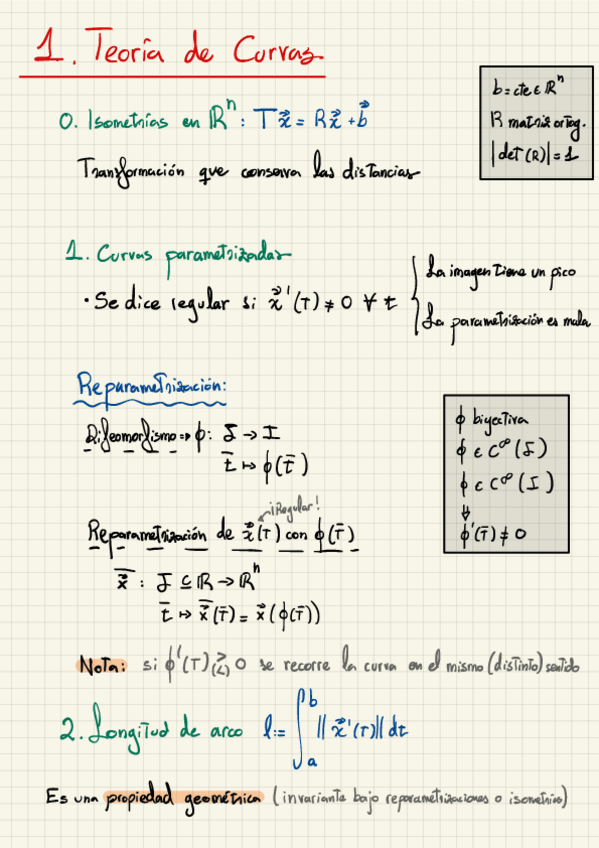 1. Teoría de Curvas
0. Isometrías en ℝⁿ : T x⃗ = R x⃗ + b⃗
b = cte ∈ ℝⁿ
R matriz ortog.
|det(R)| = 1
Transformación que conserva las distancias
1. Curvas parametrizadas
• Se dice regular si x⃗'(t) ≠ 0 ∀ t
La imagen tiene un pico
La parametrización es mala
Reparametrización:
Difeomorfismo => ϕ: J → I
t̄ ↦ ϕ(t̄)
ϕ biyectiva
ϕ ∈ C^∞(J)
ϕ ∈ C^∞(I)
⇓
ϕ'(t̄) ≠ 0
¡Regular!
Reparametrización de x⃗(t) con ϕ(t̄)
x̄⃗ : J ⊆ ℝ → ℝⁿ
t̄ ↦ x̄⃗(t̄) = x⃗(ϕ(t̄))
Nota: si ϕ'(t) > (<) 0 se recorre la curva en el mismo (distinto) sentido
2. Longitud de arco l := ∫_a^b ||x⃗'(t)|| dt
Es una propiedad geométrica (invariante bajo reparametrizaciones o isometrías)